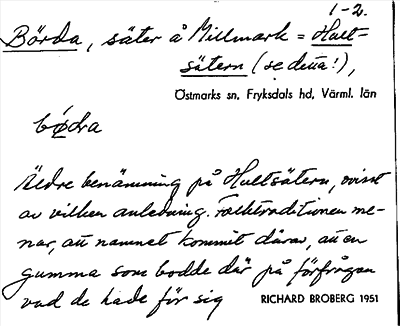 1-2.
Börda, säter å Millmark = Hult-
sätern (se detta!),
Östmarks sn, Fryksdals hd, Värml. län
bǿdra
Äldre benämning på Hultsätern, ovisst
av vilken anledning. Folktraditionen me-
nar, att namnet kommit därav, att en
gumma som bodde där på förfrågan
vad de hade för sig
RICHARD BROBERG 1951